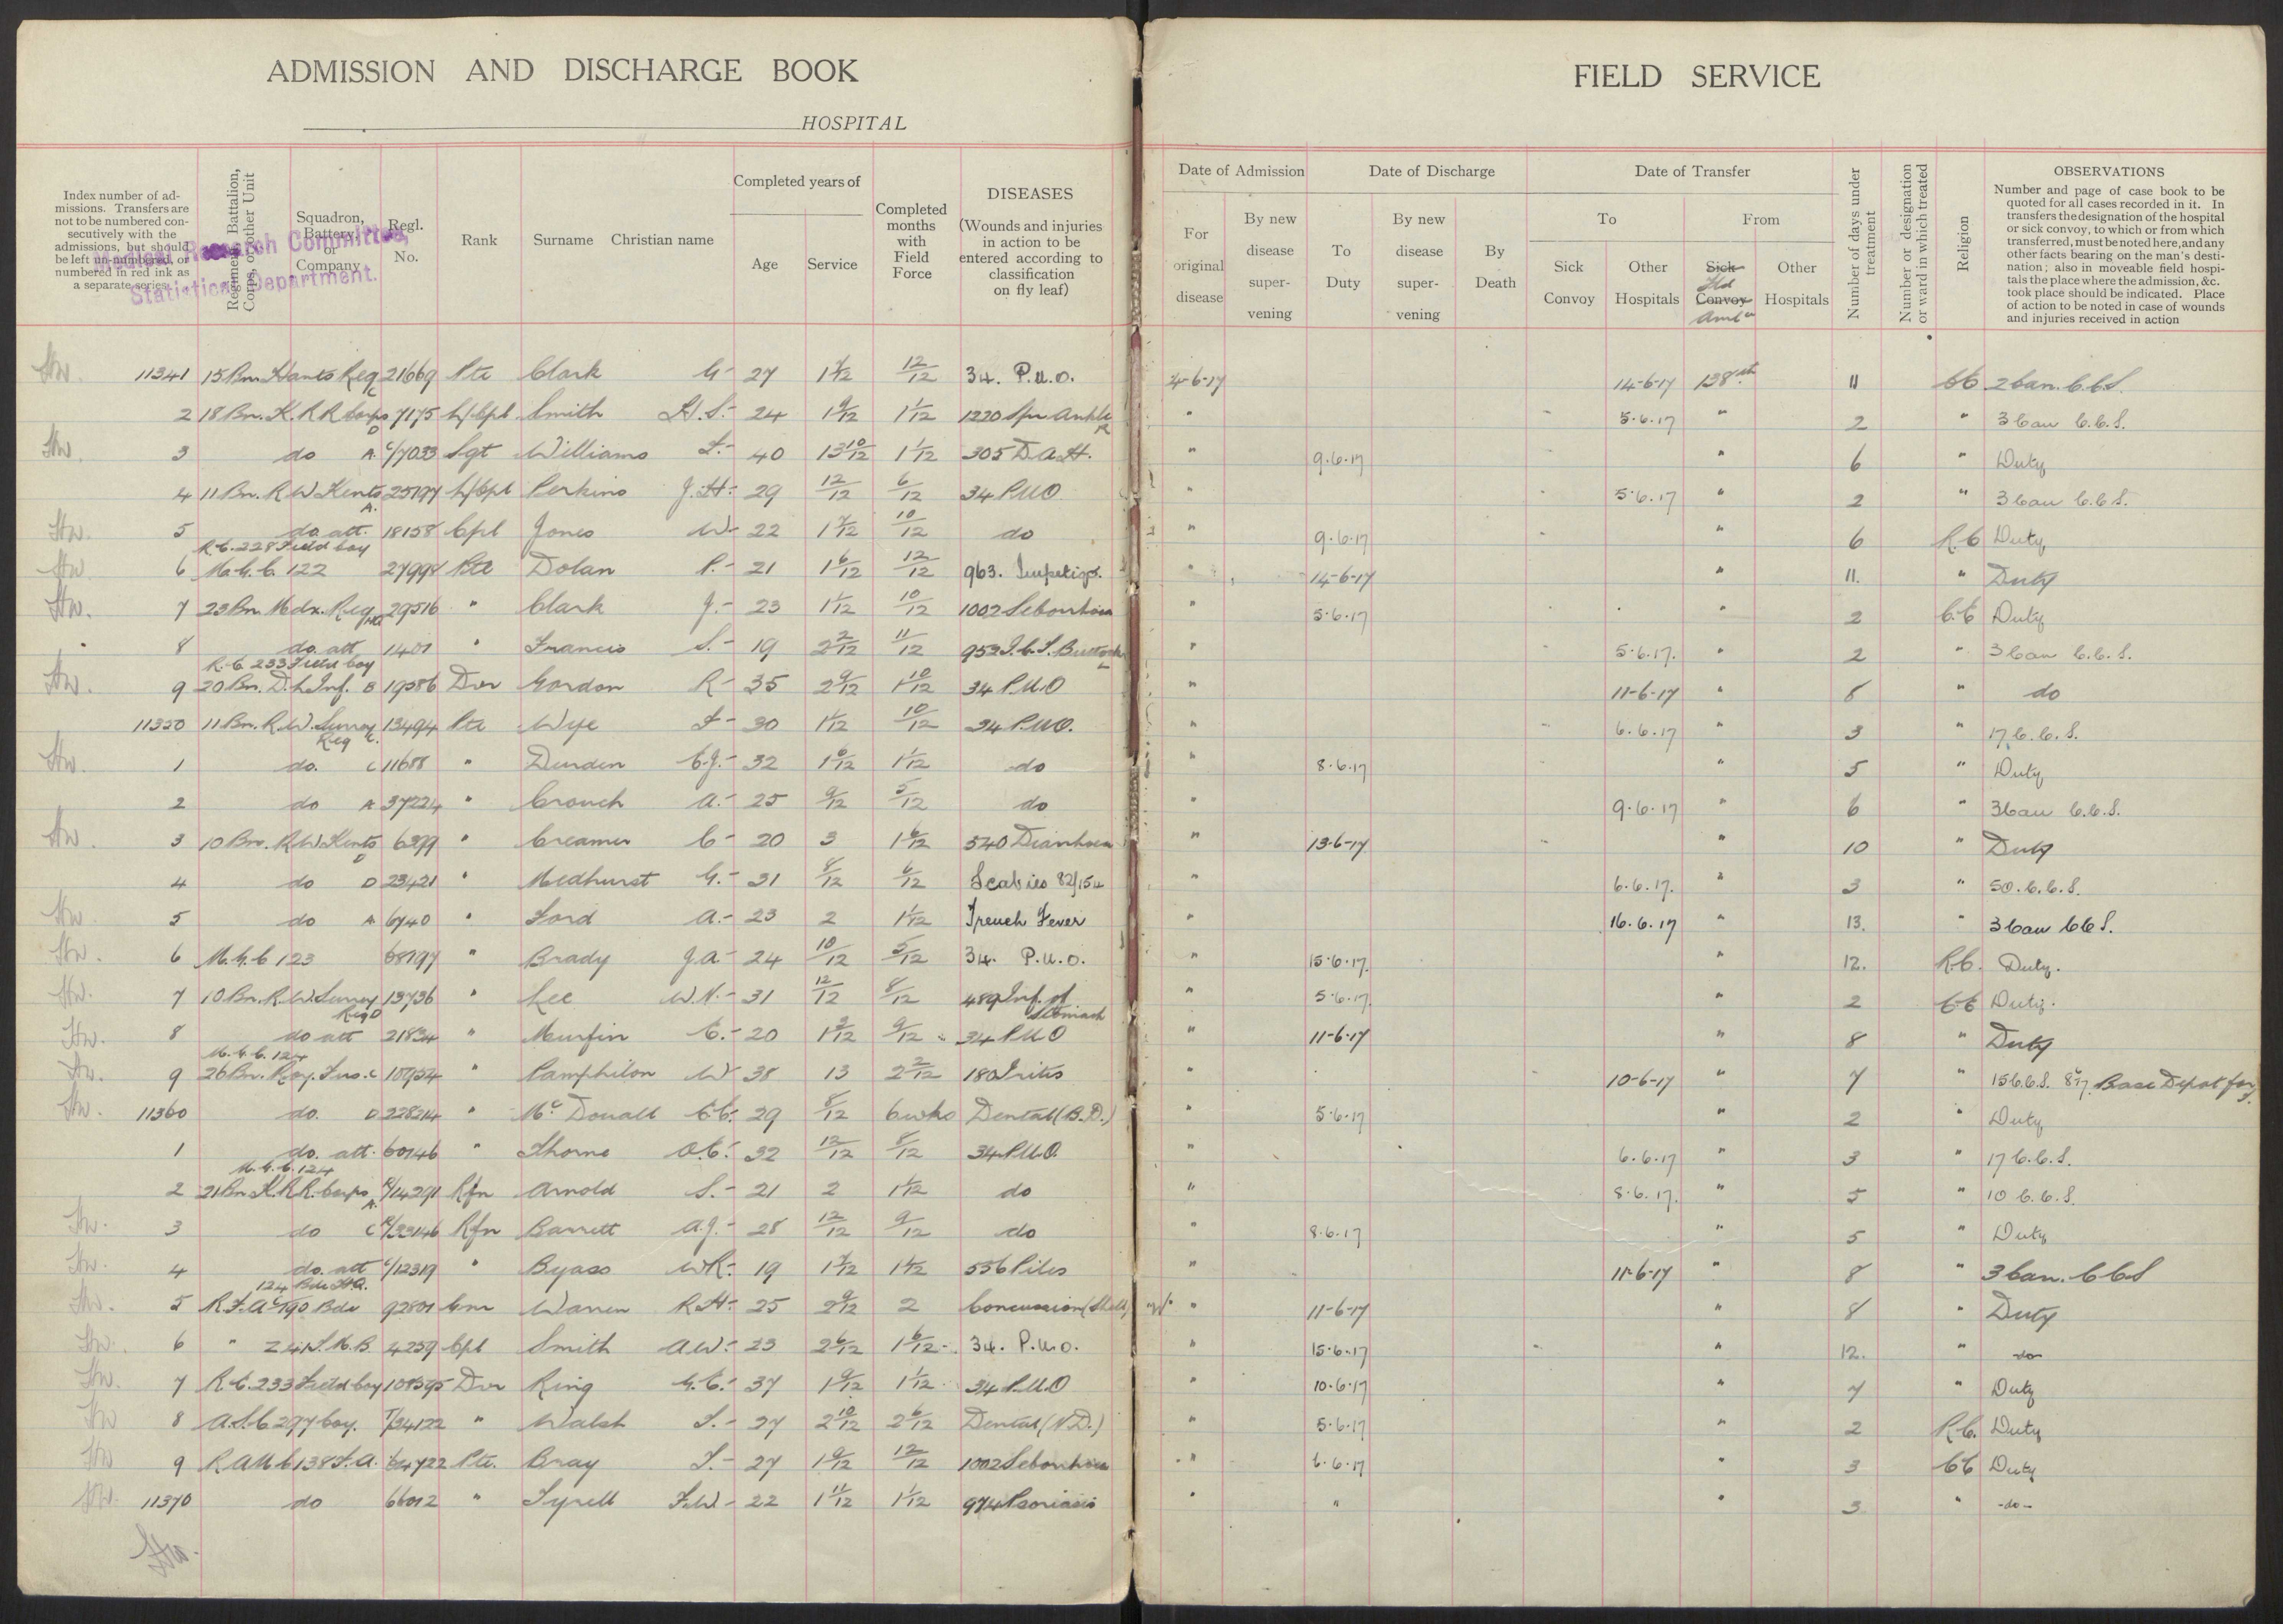 ADMISSION AND DISCHARGE BOOK
HOSPITAL
FIELD SERVICE
Index number of admissions. Transfers are not to be numbered consecutively with the admissions, but should be left un-numbered, or numbered in red ink as a separate series.
Regiment, Battalion, Corps, or other Unit
Squadron, Battery, or Company
Regl. No.
Rank
Surname Christian name
Completed years of
Age
Service
Completed months with Field Force
DISEASES
(Wounds and injuries in action to be entered according to classification on fly leaf)
Medical Research Committee,
Statistical Department.
Date of Admission
For original disease
By new disease supervening
Date of Discharge
To Duty
By new disease supervening
By Death
Date of Transfer
To
From
Sick Convoy
Other Hospitals
Sick Convoy
Fld Amb
Other Hospitals
Number of days under treatment
Number or designation or ward in which treated
Religion
OBSERVATIONS
Number and page of case book to be quoted for all cases recorded in it. In transfers the designation of the hospital or sick convoy, to which or from which transferred, must be noted here, and any other facts bearing on the man's destination; also in moveable field hospitals the place where the admission, &c. took place should be indicated. Place of action to be noted in case of wounds and injuries received in action
11341 15 Bn. Hants Reg C 21669 Pte Clark G- 27 1 12/12 34. P.U.O. 4-6-17 14-6-17 138th 11 CE 2 Can. C.C.S.
2 18 Bn. K.R.R Corps D 7175 L/Cpl Smith H.S.- 24 1 9/12 1 1/12 1220 Spr Ankle R " 5.6.17 " 2 " 3 Can C.C.S.
3 do A. C/7033 Sgt Williams 40 13 10/12 1 1/12 305 D.A.H. " 9.6.17 " 6 " Duty
4 11 Bn. R W Kents A. 25197 L/Cpl Perkins J.H- 29 12/12 6/12 34 P.U.O " 5.6.17 " 2 " 3 Can C.C.S.
5 do att. R.E. 228 Field Coy 18158 Cpl Jones W- 22 10/12 do " 9.6.17 " 6 R.C Duty
6 M.G.C. 122 27998 Pte Dolan P.- 21 1 6/12 12/12 963. Impetigo. " 14-6-17 " 11. " Duty
7 23 Bn. Mdx. Reg HQ 29516 " Clark J.- 23 1 1/12 10/12 1002 Seborrhoea " 5.6.17 " 2 C.E Duty
8 do. att R.E. 233 Field Coy 1401 " Francis S.- 19 2 2/12 11/12 953 I.C.T. Buttock L " 5.6.17. " 2 " 3 Can C.C.S.
9 20 Bn. D.L Inf. B 19586 Dvr Gordon R- 35 2 9/12 1 10/12 34 P.U.O " 11-6-17 " 8 " do
11350 11 Bn. R.W. Surrey Reg C. 13494 Pte Wye 30 1 1/12 10/12 34 P.U.O. " 6.6.17 " 3 " 17 C.C.S.
1 do. C 11688 " Durden C.J.- 32 1 6/12 1 1/12 do " 8.6.17 " 5 " Duty
2 do A 37224 " Crouch A.- 25 9/12 5/12 do " 9.6.17 " 6 " 3 Can C.C.S.
3 10 Bn. R.W Kents D 6299 " Creamer C- 20 3 1 6/12 540 Diarrhoea " 13-6-17 " 10 " Duty
4 do D 23421 " Medhurst G.- 31 8/12 6/12 Scabies " 6.6.17. " 3 " 50. C.C.S.
5 do A 6740 " Ford A.- 23 2 1 1/12 Trench Fever " 16.6.17 " 13. " 3 Can CCS.
6 M.G.C 123 68197 " Brady J.A- 24 10/12 5/12 34. P.U.O. " 15.6.17. " 12. R.C. Duty.
7 10 Bn. R.W. Surrey Reg D 13736 " Lee W.N.- 31 12/12 8/12 489 Inf. of Stomach " 5.6.17. " 2 C.E Duty.
8 do att M.G.C. 124 21834 " Murfin C.- 20 1 3/12 9/12 34 P.U.O " 11-6-17 " 8 " Duty
9 26 Bn. Roy. Fus. C 10954 " Pamphilon W 38 13 2 2/12 180 Iritis " 10-6-17 " 7 " 15 C.C.S. Base Depot for
11360 do. D 228214 " McDouall C.C. 29 8/12 6 wks Dental (B.D.) " 5.6.17 " 2 " Duty
1 do. att. M.G.C. 124 60746 " Thorne O.C. 32 12/12 8/12 34 P.U.O. " 6.6.17 " 3 " 17 C.C.S.
2 21 Bn K.R.R. Corps A. R/14291 Rfn Arnold S.- 21 2 do " 8.6.17. " 5 " 10 C.C.S.
3 do C R/33146 Rfn Barrett A.J.- 28 12/12 9/12 do " 8.6.17 " 5 " Duty
4 do. att 124 Bde H.Q. C/12319 " Byass W.R- 19 556 Piles " 11-6-17 " 8 " 3 Can. C.C.S
5 R.F.A C/190 Bde 92801 Gnr Warren R.H- 25 2 9/12 2 Concussion (Shell) " 11-6-17 " 8 " Duty
6 " Z 41 T.M.B. 4259 Cpl Smith A.W- 23 2 6/12 1 6/12 34. P.U.O. " 15.6.17 " 12. " do
7 R.E. 233 Field Coy 108595 Dvr Ring G.C. 37 1 9/12 1 1/12 34 P.U.O " 10.6.17 " 7 " Duty
8 A.S.C 297 Coy. T/34122 " Walsh 27 2 10/12 2 6/12 Dental (N.D.) " 5.6.17 " 2 R.C. Duty
9 R.A.M.C 138 F.A. 64722 Pte. Bray 27 1 9/12 12/12 1002 Seborrhoea " 6.6.17 " 3 CE Duty
11370 do 66012 " Tyrell F.W- 22 1 11/12 1 1/12 974 Psoriasis " " " 3 " -do-